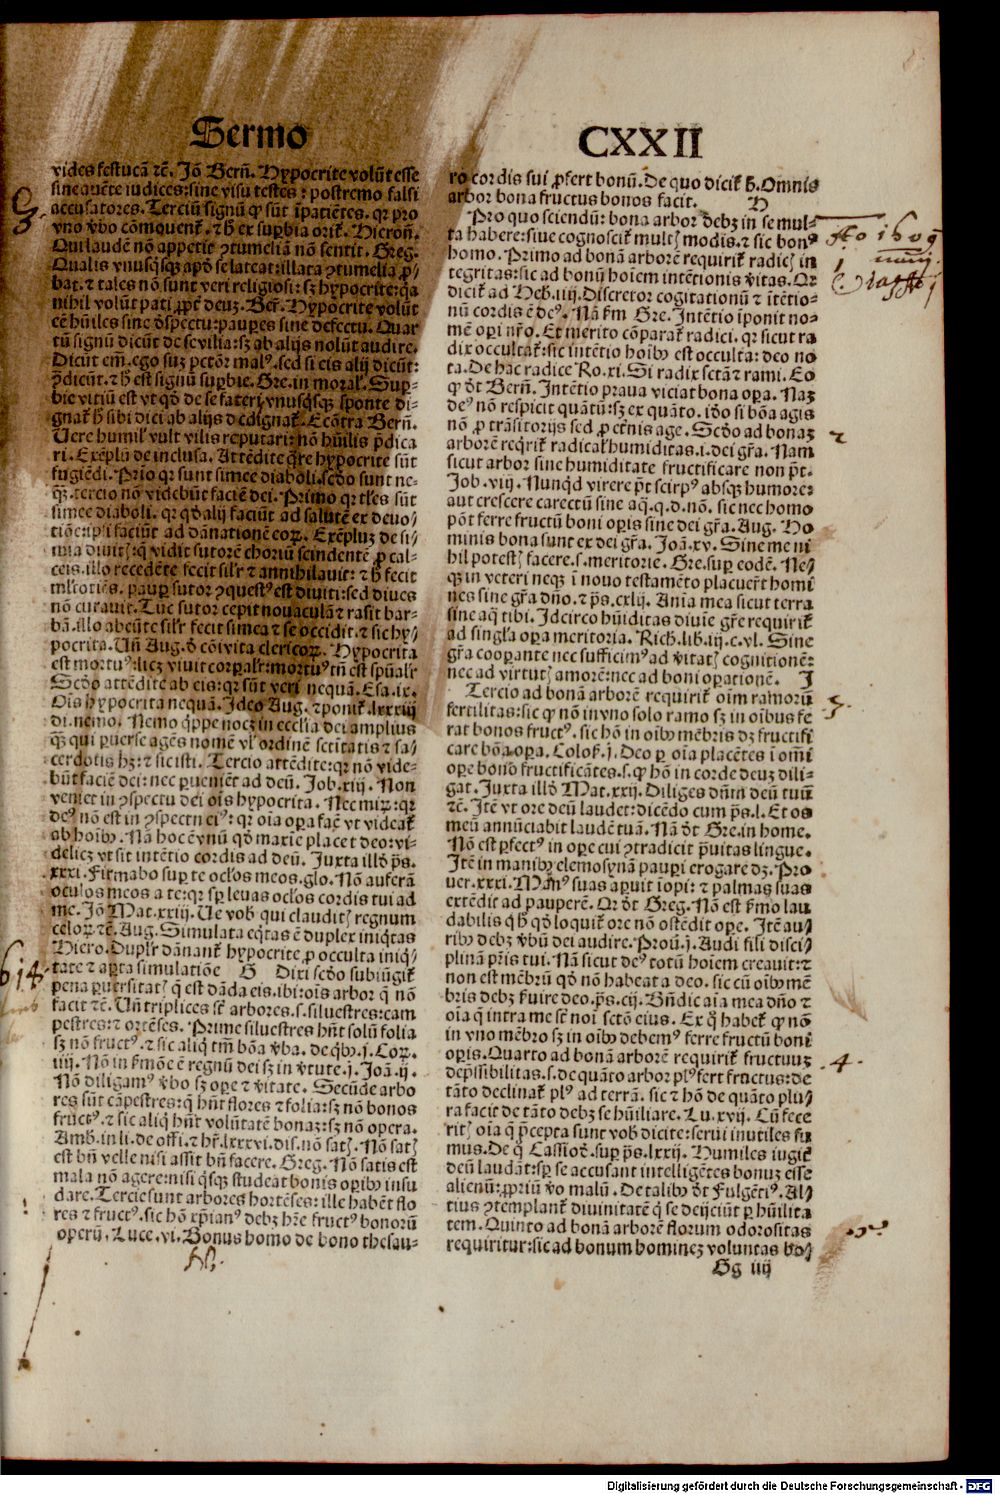 Sermo
CXXII
vides festucã ⁊c̃. Jo Bern̄. Hypocrite volũt esse
sine auẽte iudices: sine visu testes: postremo falsi
accusatores. Terciũ signũ ꝙ sũt ĩpatiẽtes. qr pro
vno vbo cõmouent᷑. ⁊ h̃ ex supbia orit᷑. Hieron̄.
Qui laudẽ nõ appetit ꝯtumeliã nõ sentit. Greg.
Qualis vnusq̃sqz apd̓ se lateat: illata ꝯtumelia ꝓ⸗
bat. ⁊ tales nõ sunt veri religiosi: sz hypocrite: q̃a
nihil volũt pati ꝓpt̓ deuz. Ber̃. Hypocrite volũt
eẽ hũiles sine dspectu: paupes sine defectu. Quar
tũ signũ dicũt de se vilia: sz ab alijs nolũt audire.
Dicũt em̃. ego suz pctõr malꝰ. sed si eis alij dicũt:
p̃dicũt. ⁊ h̃ est signũ supbie. Gre. in moral᷑. Sup⸗
bie vitiũ est vt qd̓ de se faterj vnusq̃sqz sponte di⸗
gnat᷑ h̃ sibi dici ab alijs dedignat᷑. Ecõtra Bern̄.
Uere humil᷑ vult vilis reputari: nõ hũilis p̃dica
ri. Exẽplũ de inclusa. Attẽdite q̃re hypocrite sũt
fugiẽdi. Prĩo qr sunt simee diaboli. scd̓o sunt ne⸗
qz. tercio nõ videbũt faciẽ dei. Primo qr tl̃es sũt
simee diaboli. qr qd̓ alij faciũt ad salutẽ ex deuo⸗
tiõe: ip̃i faciũt ad dãnationẽ eoꝝ. Exẽpluz de si⸗
mia diuit̃: q̃ vidit sutorẽ choriũ scindentẽ ꝓ cal⸗
ceis. illo recedẽte fecit sil̃r ⁊ annihilauit: ⁊ h̃ fecit
ml̃totiẽs. paup sutor ꝯquestꝰ est diuiti: sed diues
nõ curauit. Tũc sutor cepit nouaculã ⁊ rasit bar⸗
bã. illo abeũte sil̃r fecit simea ⁊ se occidit. ⁊ sic hy⸗
pocrita. Un̄ Aug. d̓ cõiuita clericoꝝ. Hypocrita
est mortuꝰ: licz viuit corpal̃r: mortuꝰ tñ est spũal̃r
Scd̓o attẽdite ab eis: qr sũt veri nequã. Esa. ix.
Oĩs hypocrita nequã. Ideo Aug. ⁊ ponit᷑. lxxxiij
di. nemo. Nemo q̃ppe nocz in ecclĩa dei amplius
q̃z qui puerse agẽs nomẽ vl᷑ ordinẽ sctĩtatis ⁊ sa⸗
cerdotis hz: ⁊ sic isti. Tercio attẽdite: qr nõ vide⸗
bũt faciẽ dei: nec puenieẽt ad deũ. Job. xiij. Non
veniet in ꝯspectu dei oĩs hypocrita. Nec miꝝ: qr
deꝰ nõ est in ꝯspectu eiꝰ: qr oĩa opa facẽ vt videat᷑
ab hoĩbꝰ. Nã hoc ẽ vnũ qd̓ maxĩe placet deo: vi⸗
delicz vt sit intẽtio cordis ad deũ. Juxta illd̓ p̃s.
xxxi. Firmabo sup te ocl̓os meos. glo. Nõ auferã
oculos meos a te: qr sp leuas ocl̓os cordis tui ad
me. Jo Mat. xxiij. Ue vob̃ qui claudit̃ regnum
celoꝝ ⁊c̃. Aug. Simulata eq̃tas ẽ duplex iniq̃tas
Hiero. Dupl̃r dãnant᷑ hypocrite ꝓ occulta iniq̃⸗
tate ⁊ apta simulatiõe G Dixi scd̓o subiũgit᷑
pena puersitat̃ q̃ est dãda eis. ibi: oĩs arbor q̃ nõ
facit ⁊c̃. Un̄ triplices st̃ arbores. s. siluestres: cam
pestres: ⁊ ortẽses. Prime siluestres hñt solũ folia
sz nõ fructꝰ. ⁊ sic aliq̃ tm̃ bõa vba. de qbꝰ. j. Cor.
iiij. Nõ in fmõe ẽ regnũ dei sz in vtute. j. Joã. ij.
Nõ diligamꝰ vbo sz ope ⁊ vitate. Secũde arbo
res sũt cãpestres: q̃ hñt flores ⁊ folia: sz nõ bonos
fructꝰ. ⁊ sic aliq̃ hñt volũtatẽ bonaz: sz nõ opera.
Amb. in li. de offi. ⁊ hr̃. lxxxvi. dis. nõ sat̃. Nõ sat̃
est bñ velle nisi assit bñ facere. Greg. Nõ satis est
mala nõ agere: nisi q̃sqz studeat bonis opibꝰ insu
dare. Tercie sunt arbores hortẽses: ille habẽt flo
res ⁊ fructꝰ. sic hõ xp̃ianꝰ debz hr̃e fructꝰ bonorũ
operũ. Luce. vi. Bonus homo de bono thesau⸗
ro cordis sui ꝓfert bonũ. De quo dicit᷑ h̃. Omnis
arbor bona fructus bonos facit. H
Pro quo sciendũ: bona arbor debz in se mul⸗
ta habere: siue cognoscit᷑ mult̃ modis. ⁊ sic bonꝰ
homo. Primo ad bonã arborẽ requirit᷑ radic̃ in
tegritas: sic ad bonũ hoĩem intẽtionis vitas. Qr
dicit᷑ ad Heb. iiij. Discretor cogitationũ ⁊ ĩtẽtio⸗
nũ cordis ẽ deꝰ. Nã fm Gre. Intẽtio ĩponit no⸗
mẽ opi nr̃o. Et merito cõparat᷑ radici. qr sicut ra
dix occultat᷑: sic intẽtio hoĩbꝰ est occulta: deo no
ta. De hac radice Ro. xi. Si radix sctã ⁊ rami. Eo
ꝙ dt̓ Bern̄. Intẽtio praua viciat bona opa. Naz
deꝰ nõ respicit quãtũ: sz ex quanto. id̓o si bõa agis
nõ ꝓ trãsitorijs sed ꝓ et̓nis age. Scd̓o ad bonaz
arborẽ reqrit᷑ radical᷑ humiditas. i. dei gr̃a. Nam
sicut arbor sine humiditate fructificare non p̃t.
Job. viij. Nunqd̓ virere p̃t scirpꝰ absqz humore:
aut crescere carectũ sine aq̃. q. d. nõ. sic nec homo
põt ferre fructũ boni opis sine dei gr̃a. Aug. Ho
minis bona sunt ex dei gr̃a. Joã. xv. Sine me ni
hil potest̃ facere. s. meritorie. Gre. sup eodẽ. Ne⸗
qz in veteri neqz ĩ nouo testamẽto placuer̃t homi
nes sine gr̃a dño. ⁊ p̃s. cxlij. Anĩa mea sicut terra
sine aq̃ tibi. Idcirco hũiditas diuĩe gr̃e requirit᷑
ad singl̃a opa meritoria. Rich. lib. iij. c. vl. Sine
gr̃a coopante nec sufficimꝰ ad vitat̃ cognitionẽ:
nec ad virtut̃ amorẽ: nec ad boni opationẽ. I
Tercio ad bonã arborẽ requirit᷑ oĩm ramorũ
fertilitas: sic ꝙ nõ in vno solo ramo sz in oĩbus fe
rat bonos fructꝰ. sic hõ in oĩbꝰ mẽbris dz fructifi
care bõa opa. Colos̃. j. Deo p oĩa placẽtes ĩ om̃i
ope bono fructificãtes. s. ꝙ hõ in corde deuz dili⸗
gat. Juxta illd̓ Mat. xxij. Diliges dñm deũ tuũ
⁊c̃. Itẽ vt ore deũ laudet: dicẽdo cum p̃s. l. Et os
meũ annũciabit laudẽ tuã. Nã dt̓ Gre. in home.
Nõ est pfectꝰ in ope cui ꝯtradicit p̃uitas lingue.
Itẽ in manibꝰ elemosynã paupi erogare dz. Pro
uer. xxxi. Manꝰ suas apuit ĩopi: ⁊ palmas suas
extẽdit ad pauperẽ. Qr dt̓ Greg. Nõ est fmo lau
dabilis q̃ h̃ qd̓ loquit᷑ ore nõ ostẽdit ope. Itẽ au⸗
ribꝰ debz vbũ dei audire. Prou. j. Audi fili disci⸗
plinã pr̃is tui. Nã sicut deꝰ totũ hoĩem creauit: ⁊
non est mẽbrũ qd̓ nõ habeat a deo. sic cũ oĩbꝰ mẽ
bris debz fuire deo. p̃s. cij. Bñdic aĩa mea dño ⁊
oĩa q̃ intra me st̃ noĩ sctõ eius. Ex q̃ habet᷑ ꝙ nõ
in vno mẽbro sz in oĩbꝰ debemꝰ ferre fructũ boni
opis. Quarto ad bonã arborẽ requirit᷑ fructuuz
dep̃ssibilitas. s. de quãto arbor plꝰ fert fructus: de
tãto declinat᷑ plꝰ ad terrã. sic ⁊ hõ de quãto plu⸗
ra facit de tãto debz se hũiliare. Lu. xvij. Cũ fece
rit̃ oĩa q̃ p̃cepta sunt vob̃ dicite: serui inutiles su
mus. De q̃ Cassiod̓. sup p̃s. lxxij. Humiles iugit᷑
deũ laudãt: sp se accusant intelligẽtes bonuz esse
alienũ: ꝓpriũ vo malũ. De talibꝰ dt̓ Fulgẽtiꝰ. Al⸗
tius ꝯtemplant᷑ diuinitatẽ q̃ se deijciũt p hũilita
tem. Quinto ad bonã arborẽ florum odorositas
requiritur: sic ad bonum hominez voluntas bo⸗
Gg iiij
614
Ao 1609
2
3.
4.
5.
Digitalisierung gefördert durch die Deutsche Forschungsgemeinschaft - DFG